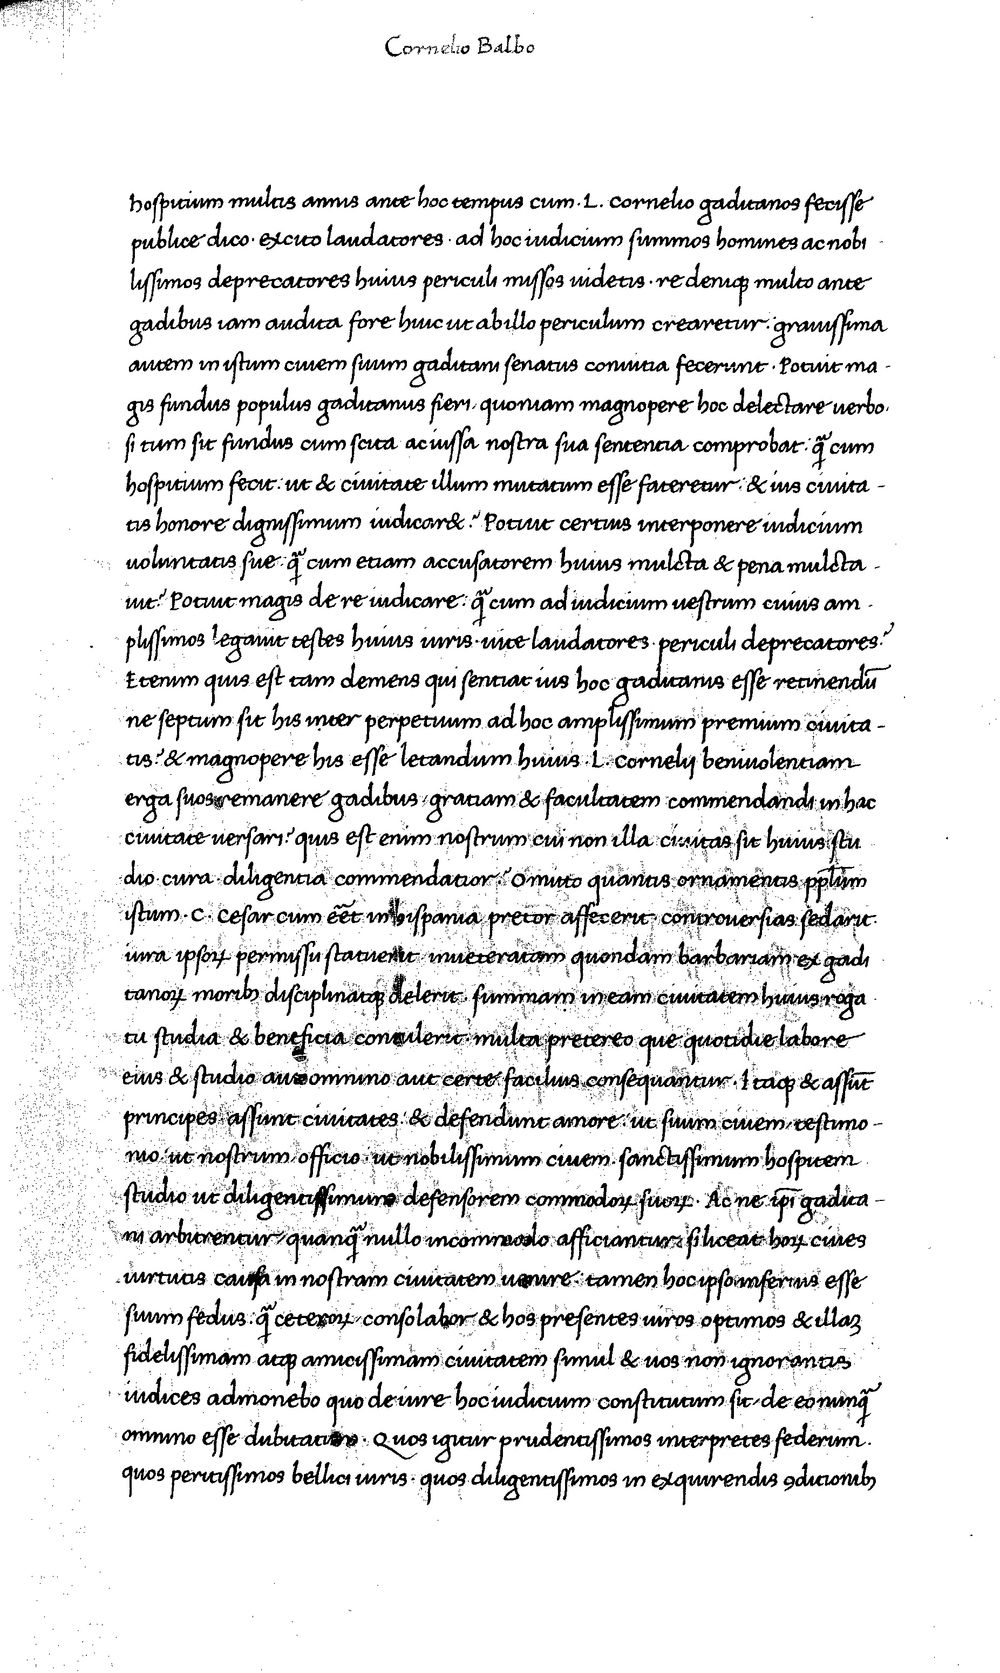 Cornelio Balbo
hospitium multis annis ante hoc tempus cum · L. cornelio gaditanos fecisse
publice dico · excito laudatores · ad hoc iudicium summos homines ac nobi
lissimos deprecatores huius periculi missos uidetis · re deniqꝫ multo ante
gadibus iam audita fore huic ut ab illo periculum crearetur : grauissima
autem in istum ciuem suum gaditani senatus conuitia fecerunt · Potuit ma -
gis fundus populus gaditanus fieri, quoniam magnopere hoc delectare uerbo.
si tum sit fundus cum scita ac iussa nostra sua sententia comprobat : qᷓ cum
hospitium fecit : ut & ciuitate illum mutatum esse fateretur : & ius ciuita -
tis honore dignissimum iudicar& ? Potuit certius interponere iudicium
uoluntatis sue : qᷓ cum etiam accusatorem huius mulcta & pena mulcta -
uit ? Potuit magis de re iudicare : qᷓ cum ad iudicium uestrum ciuis am -
plissimos legauit testes huius iuris · uite laudatores · periculi deprecatores ?
Etenim quis est tam demens qui sentiat ius hoc gaditanis esse retinendū
ne septum sit his inter perpetuum ad hoc amplissimum premium ciuita -
tis ? & magnopere his esse letandum huius · L. cornelij beniuolentiam
erga suos remanere gadibus, gratiam & facultatem commendandi in hac
ciuitate uersari ? quis est enim nostrum cui non illa ciuitas sit huius stu
dio · cura · diligentia commendatior ? Omitto quantis ornamentis pp̄lūm
istum · C · Cesar cum eēt in hispania pretor affecerit · controuersias sedarit ·
iura ipsoꝝ permissu statuerit · inueteratam quondam barbariam ex gadi
tanoꝝ moribꝫ disciplinaqꝫ delerit · summam in eam ciuitatem huius roga
tu studia & beneficia contulerit · multa pretereo que quotidie labore
eius & studio aut omnino aut certe facilius consequantur · Itaqꝫ & assūt
principes · assunt ciuitates · & defendunt amore · ut suum ciuem, testimo -
nio · ut nostrum, officio · ut nobilissimum ciuem · sanctissimum hospitem
studio ut diligentissimum defensorem commodoꝝ suoꝝ · Ac ne ip̄i gadita -
ni arbitrentur, quanqᷓ nullo incommodo afficiantur : si liceat hoꝝ ciues
uirtutis causa in nostram ciuitatem uenire · tamen hoc ipso inferius esse
suum fedus · qᷓ ceteroꝝ, consolabor & hos presentes uiros optimos & illaꝫ
fidelissimam atqꝫ amicissimam ciuitatem simul & uos non ignorantis
iudices admonebo quo de iure hoc iudicium constitutum sit, de eo nunqᷓ
omnino esse dubitatum · Quos igitur prudentissimos interpretes federum ·
quos peritissimos bellici iuris · quos diligentissimos in exquirendis ꝯditionibꝫ